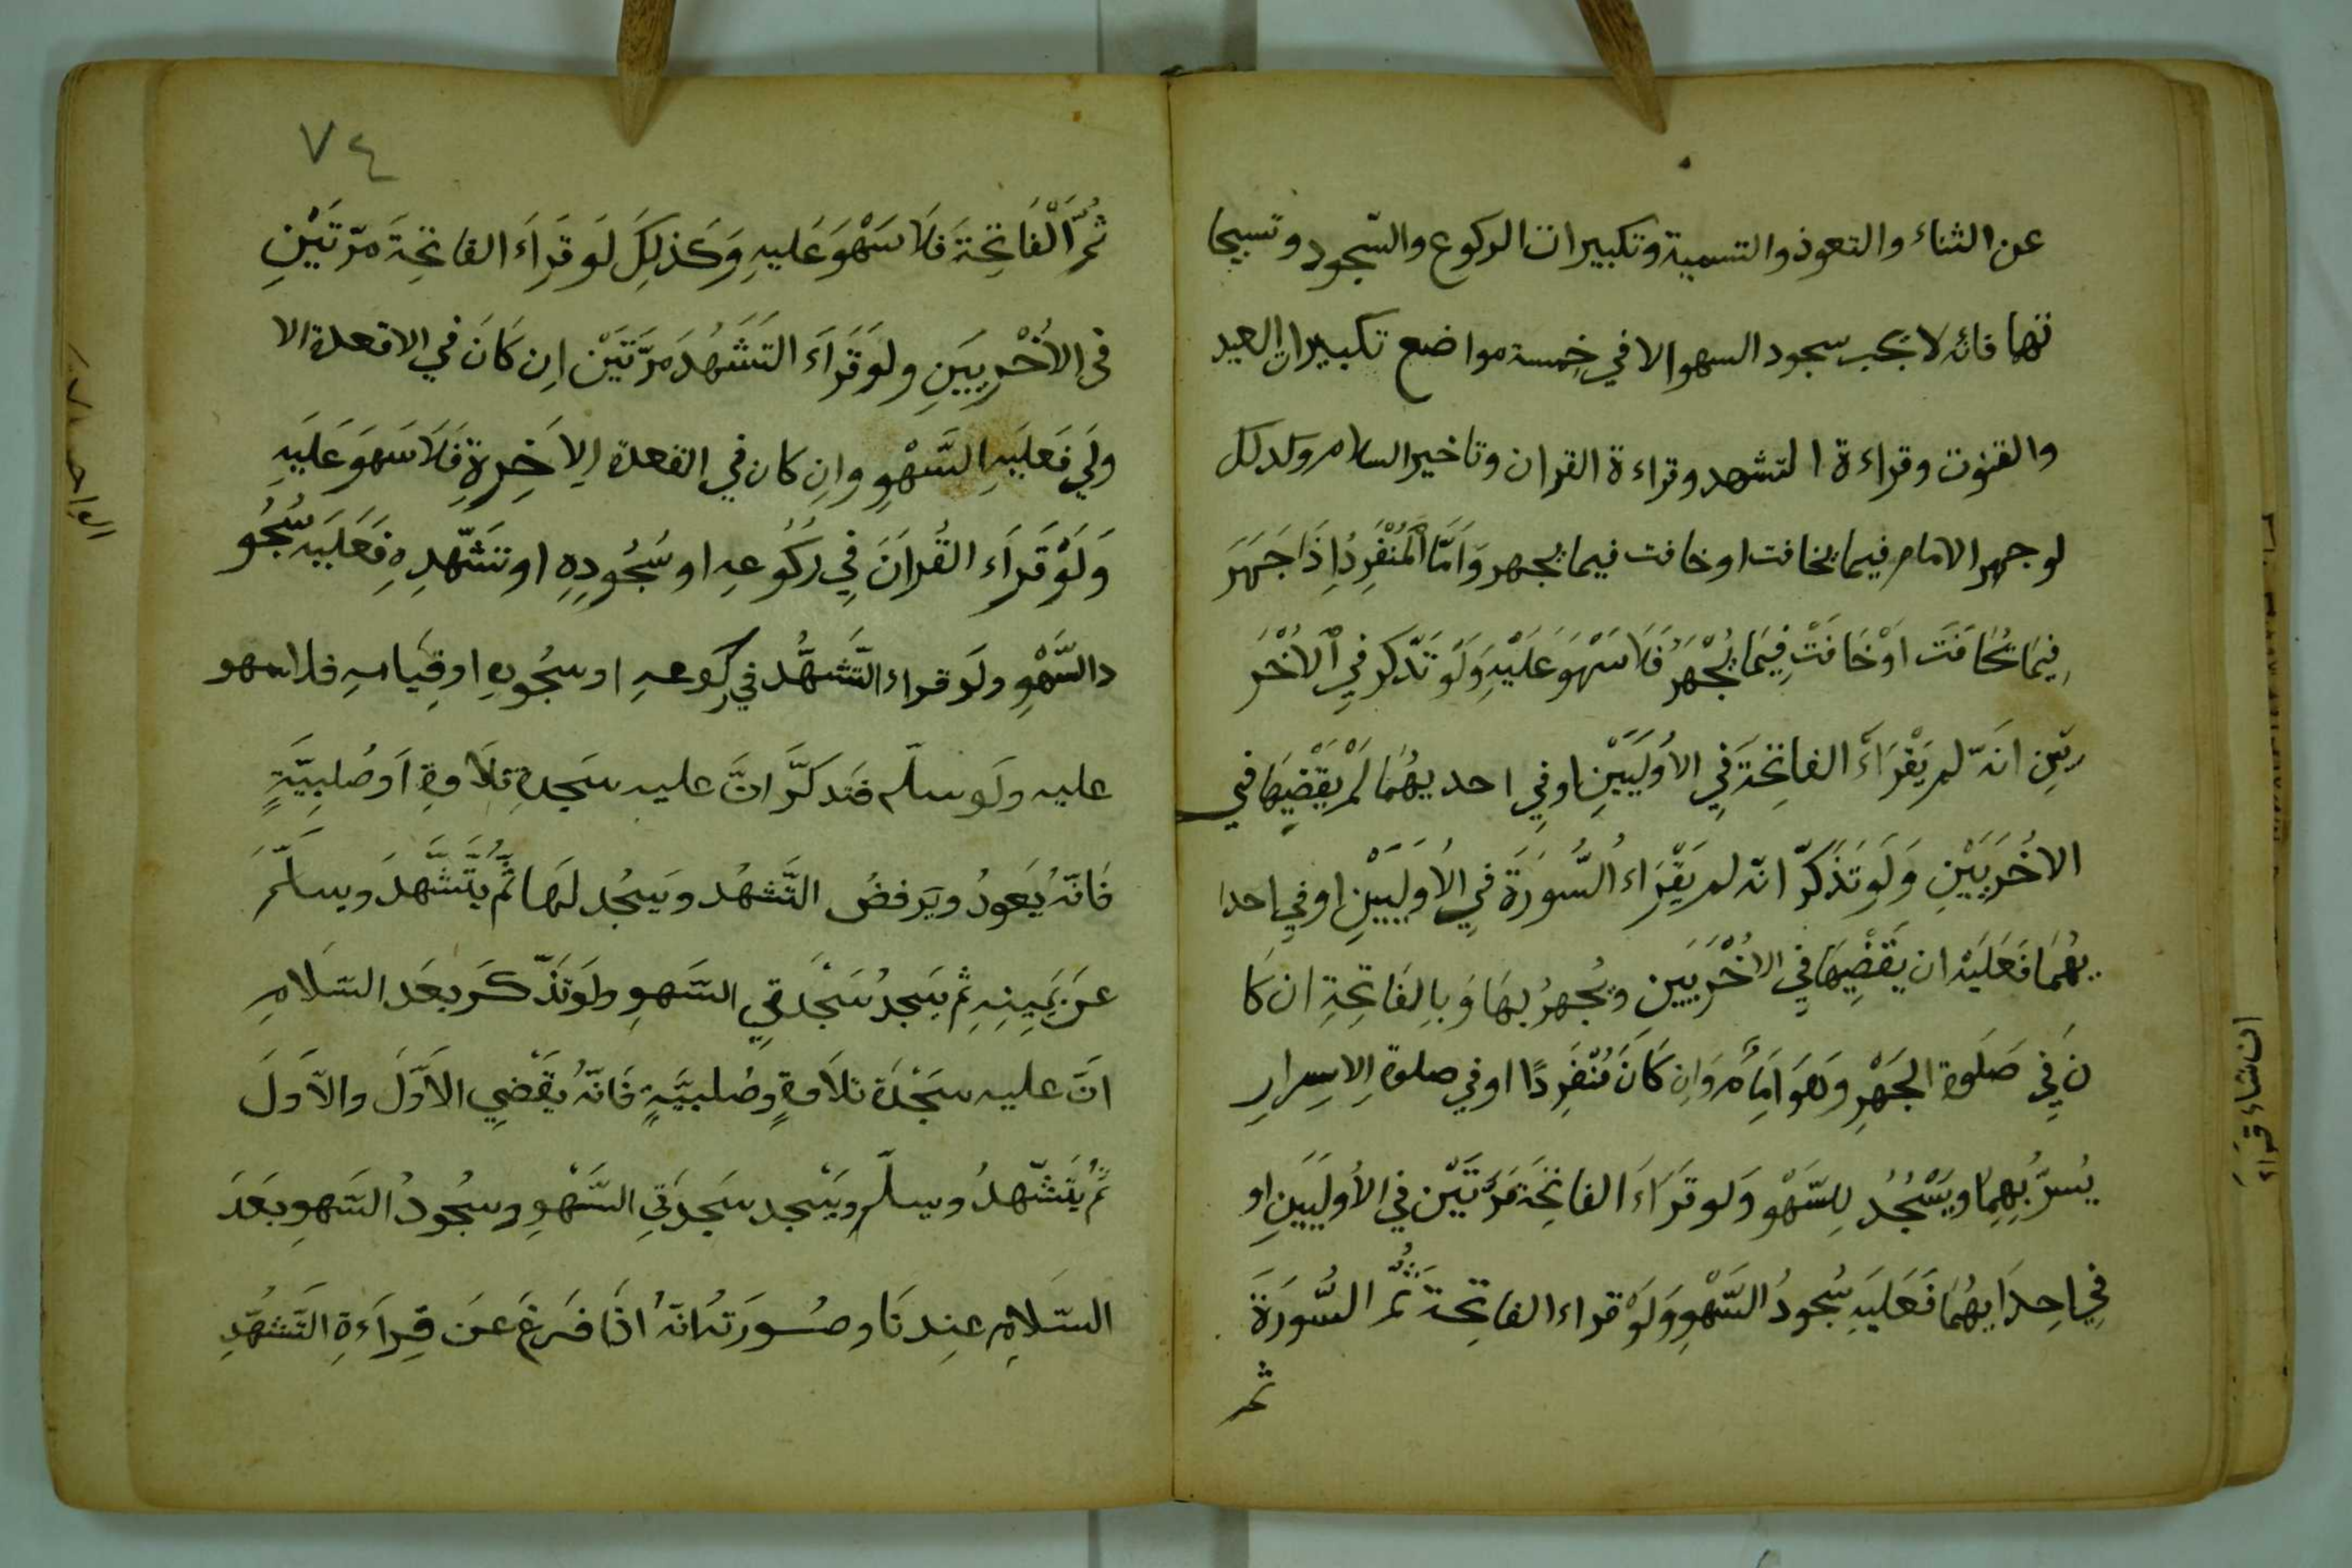 عن الثناء والتعوذ والتسمية وتكبيرات الركوع والسّجود وتسبيحا
تها فانه لا تجب سجود السهو الا في خمسة مواضع تكبيرات العيد
والقنوت وقراءة التشهد وقراءة القران وتاخير السلام وكذلك
لو جهر الامام فيما يخافت او خافت فيما يجهر وَاَمَّا اَلْمُنْفَرِدُ اِذَا جَهَرَ
فِيمَا يُخَافَتَ اَوْ خَافَتْ فِيمَا يُجْهَرُ فَلَا سَهْوَ عَلَيْهِ وَلَو تَذّكر فِي اَلاُخْرَ
يَيْنِ انَهّ لم يَقْرَاَء الفاتِحَةَ فِي الاُولَيَيْنِ او فِي احديهُمَا لَمْ يَقْضِيهَا فِي
الاخُرَيَيْنِ وَلَو تَذَكّرَ انّه لم يَقْرَاء السُّورَةَ فِي الاُولَيَيْنِ او في احدا
يهُمَا فَعَلَيَهْ ان يَقْضِيهَا فِي الاُخْرَيَيَنِ ويُجْهرُ بهَا وَ بِالفَاتِحَةِ ان كَا
نَ فِي صَلَوة الجَهْرِ وَهوَ اِمَاَم وَاِن كَانَ مُنْفَرِدًا او في صلوة الاِسِرارِ
يُسِرُّ بِهِمِا ويَسْجُدُ لِلسَّهْو وَلو قَرَاَءَ الفاتِحَةَ مَرَّتَيْن فِي الأُولَيَيَنِ او
فِي اِحِدَايهُمَا فَعَلَيَهِ سُجودُ السَّهْوِ وَلَوْ قراء الفاتِحةَ ثُمَّ السُّورَةَ
ثم
٧٤
ثُمَّ اَلْفَاتِحَةَ فَلَا سَهْوَ عَليهِ وَكَذلِكَ لَو قَرَاَءَ الفاتِحَةَ مَرّتَيْنِ
فى الاُخْرَيَيَنِ ولَو قَرَاَءَ التَشَهُدَ مَرّتَيْن اِن كَانَ في الاقعدة الا
ولَي فَعَلَيَهِ السَّهْوِ واِن كان في القعدة الِاَخِرةِ فَلَا سَهوَ عَلَيَهِ
وَلَوْ قَرَاَء القُراَنَ فِي رُكُوعهِ او سُجُودِهِ او تشَهّدِهِ فَعَلَيَهِ سُجُو
د السَّهْوِ ولَو قراء التَّشهُّد في ركوعهِ او سجُوهِ او قِيامهِ فلا سهو
عليه ولَو سلّم فتَذكَرَّ انَّ عليه سَجدةِ تلَاوة اَو صُلبِيَّةٍ
فَانّهُ يَعودُ ويَرفضُ التَّشهُد ويَسجُد لهَا ثُمَّ يَتَشَّهدَ ويسلّمَ
عَن يَمِينِهِ ثم يَسَجدُ سَجْدَتيِ السَّهوِ ولَو تَذّكَر بعَد السّلَامِ
انَّ عليه سَجْدَة تلَاوةٍ وصُلبيَّةٍ فَانّهُ يَقْضِي الاَوّلَ والاَوّلَ
ثُمَّ يَتَشّهدُ ويسلّم ويَسْجد سَجدَتيِ السَّهْوِ وسجُودُ السَّهوِ بعَدَ
السّلَامِ عِندنَا وصُورَتهُ انَهُ اذَا فرغَ عنَ قِراَءةِ التَّشهُّدِ
ان شاء قراء
الواحد